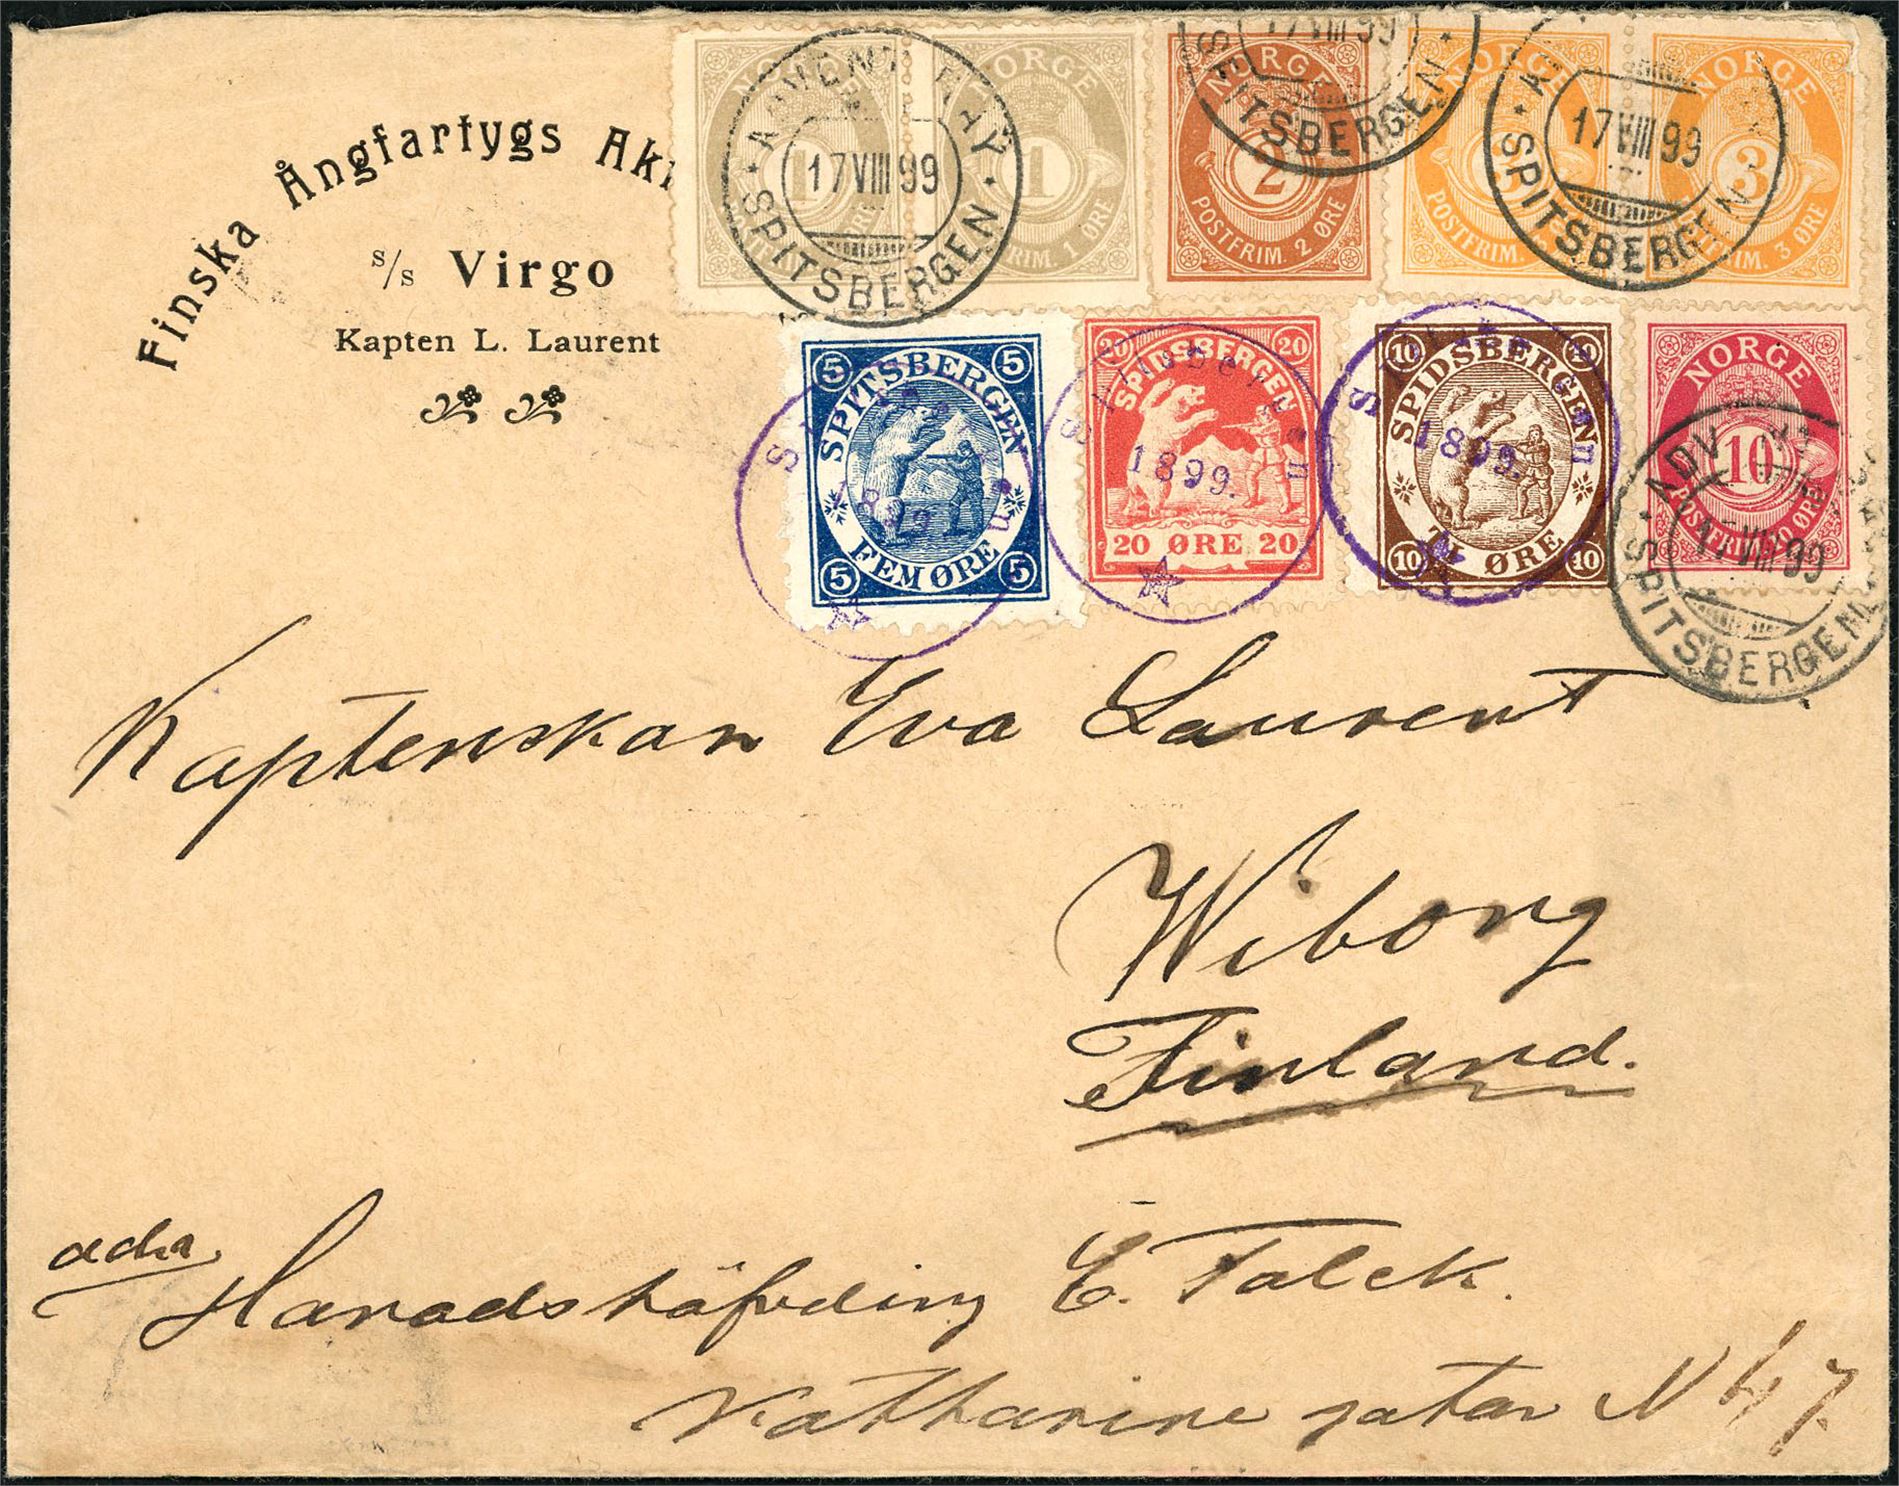 Finska Ångfartygs Ak
s/s Virgo
Kapten L. Laurent
NORGE 1 POSTFRIM. 1 ØRE
NORGE 1 POSTFRIM. 1 ØRE
NORGE 2 POSTFRIM. 2 ØRE
NORGE 3 POSTFRIM. 3 ØRE
NORGE 3 POSTFRIM. 3 ØRE
ADVENT BAY 17 VIII 99 SPITSBERGEN
17 VIII 99 SPITSBERGEN
17 VIII 99 SPITSBERGEN
5 SPITSBERGEN 5
5 FEM ØRE 5
20 SPIDSBERGEN 20
20 ØRE 20
10 SPIDSBERGEN 10
10 TI ØRE 10
NORGE 10 POSTFRIM. 10 ØRE
Spitsbergen 1899.
Spitsbergen 1899.
Spitsbergen 1899.
ADV 17 VIII 99 SPITSBERGEN
Kaptenskan Eva Laurent
Wiborg
Finland.
adr. Haradshöfding E. Talck.
Katharine gatan N 47.